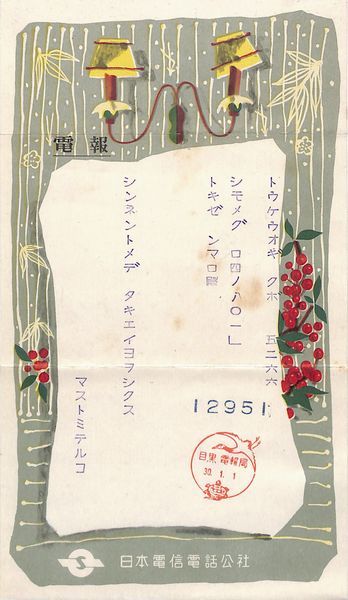 電報
トウケウオキ クボ 五二六六
シモメグ ロ四ノ八〇一」
トキゼ ンマロ殿
シンネントメデ タキエイヨヲシクス
マストミテルコ
12951
目黒電報局
30.1.1
日本電信電話公社